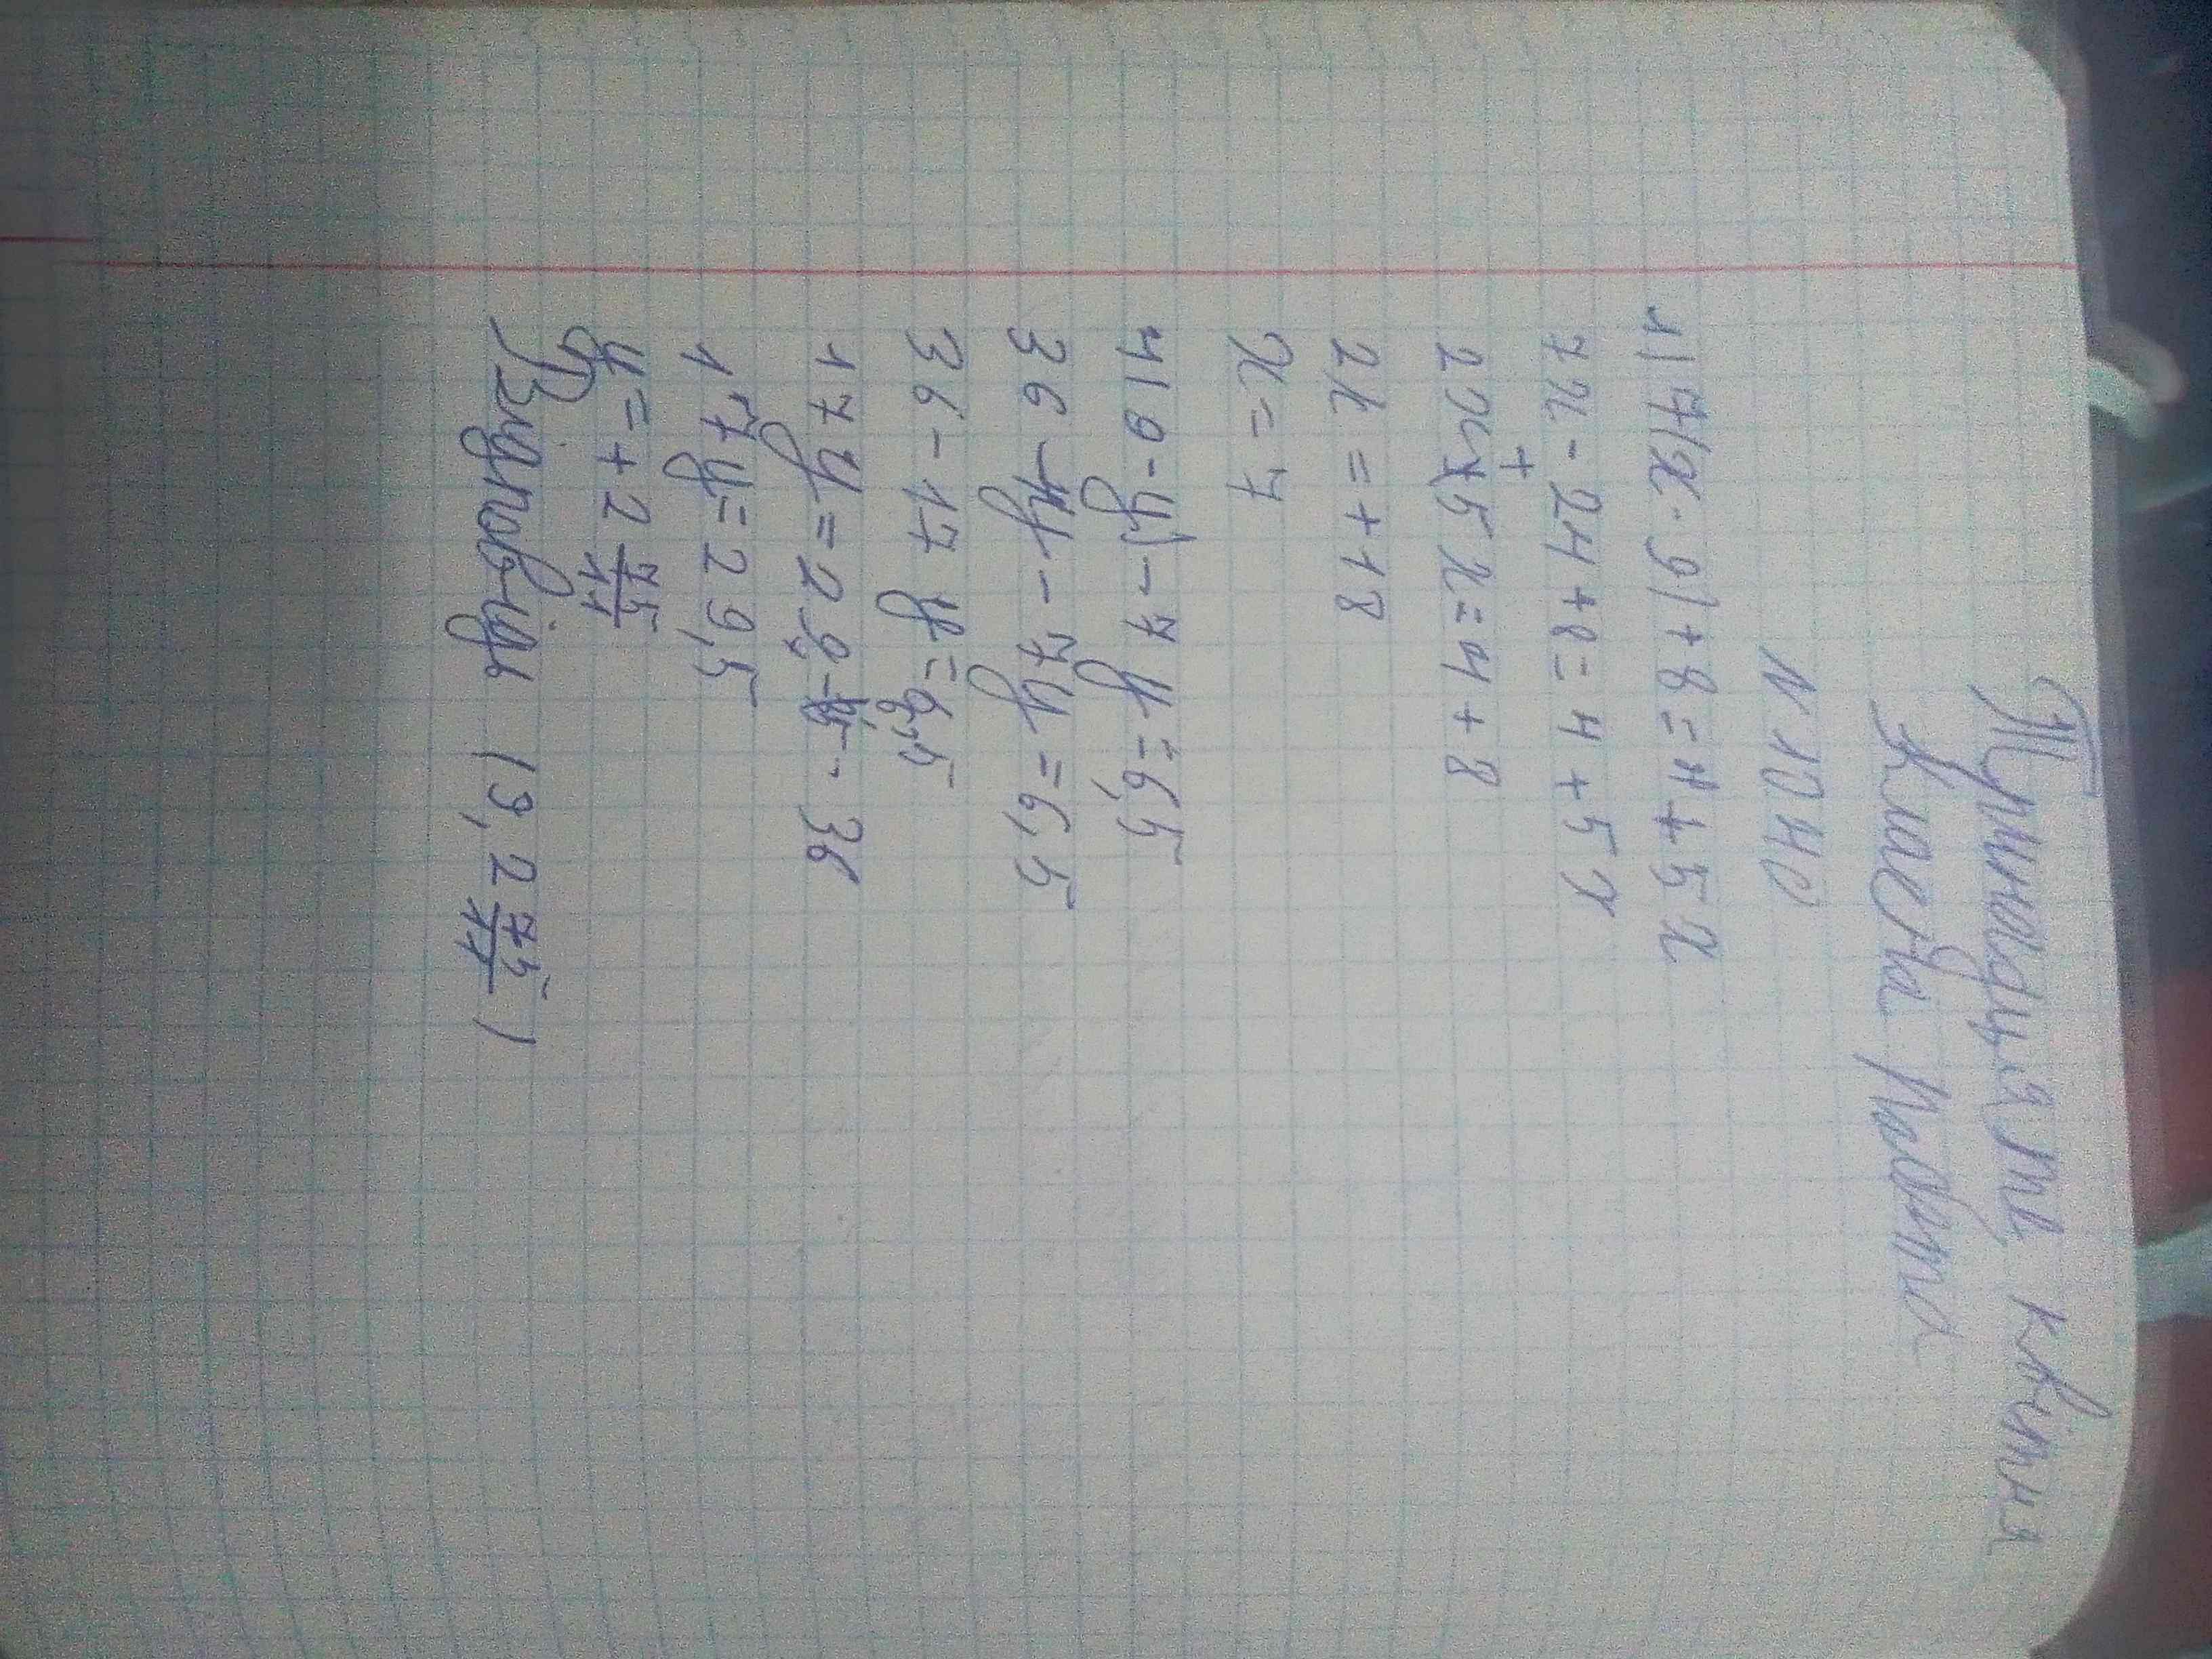 Тринадцяте квітня
Класна робота
N 1040
1) 7(x - 9) + 8 = 4 + 5x
7x - 24 + 8 = 4 + 5x
2x + 5x = 4 + 8
2x = +18
x = 7
4(9 - y) - 7y = 6,5
36 - 4y - 7y = 6,5
36 - 17y = 6,5
17y = 29 - 36
17y = 29,5
y = + 2 75/11
Відповідь (9, 2 75/11)